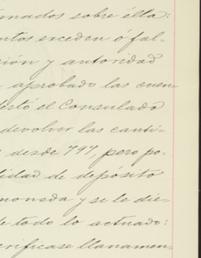 rmados sobre ésta:
ntos esceden ó fal-
ción y autoridad
aprobado las cuen
estó el Consulado
devolver las canti-
desde 797, pero po
lidad de depósito
moneda y se le die-
de todo lo actuado:
erificase llanamen